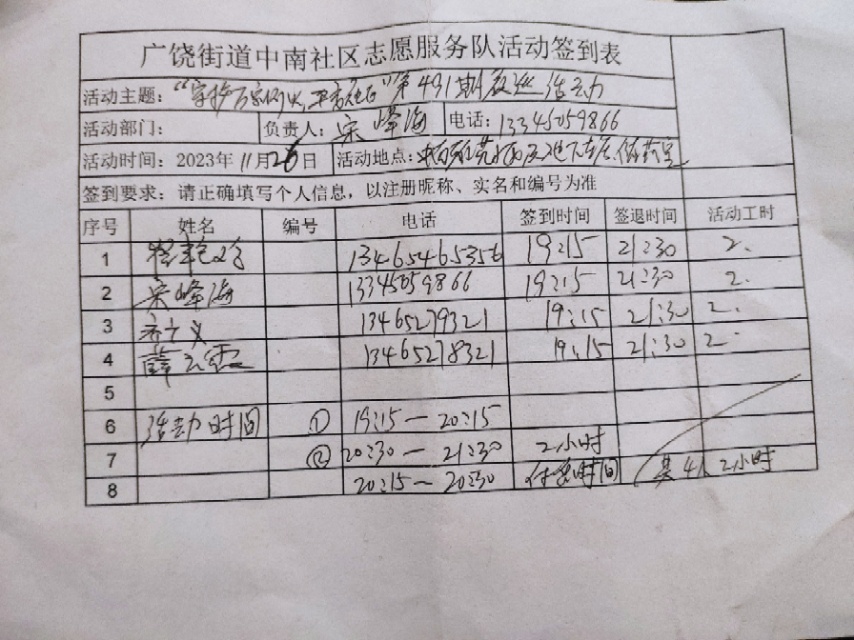 广饶街道中南社区志愿服务队活动签到表
活动主题："守护万家灯火,平安社区"第491期夜巡活动
活动部门： 负责人：宋峰海 电话：13345059866
活动时间：2023年11月26日 活动地点：
签到要求：请正确填写个人信息，以注册昵称、实名和编号为准
序号 姓名 编号 电话 签到时间 签退时间 活动工时
1 13465465356 19:15 21:30 2.
2 宋峰海 13345059866 19:15 21:30 2.
3 13465279321 19:15 21:30 2.
4 薛云霞 13465278321 19:15 21:30 2.
5
6 活动时间 ① 19:15—20:15
7 ② 20:30—21:30 2小时
8 20:15—20:30 休息时间 共4人2小时